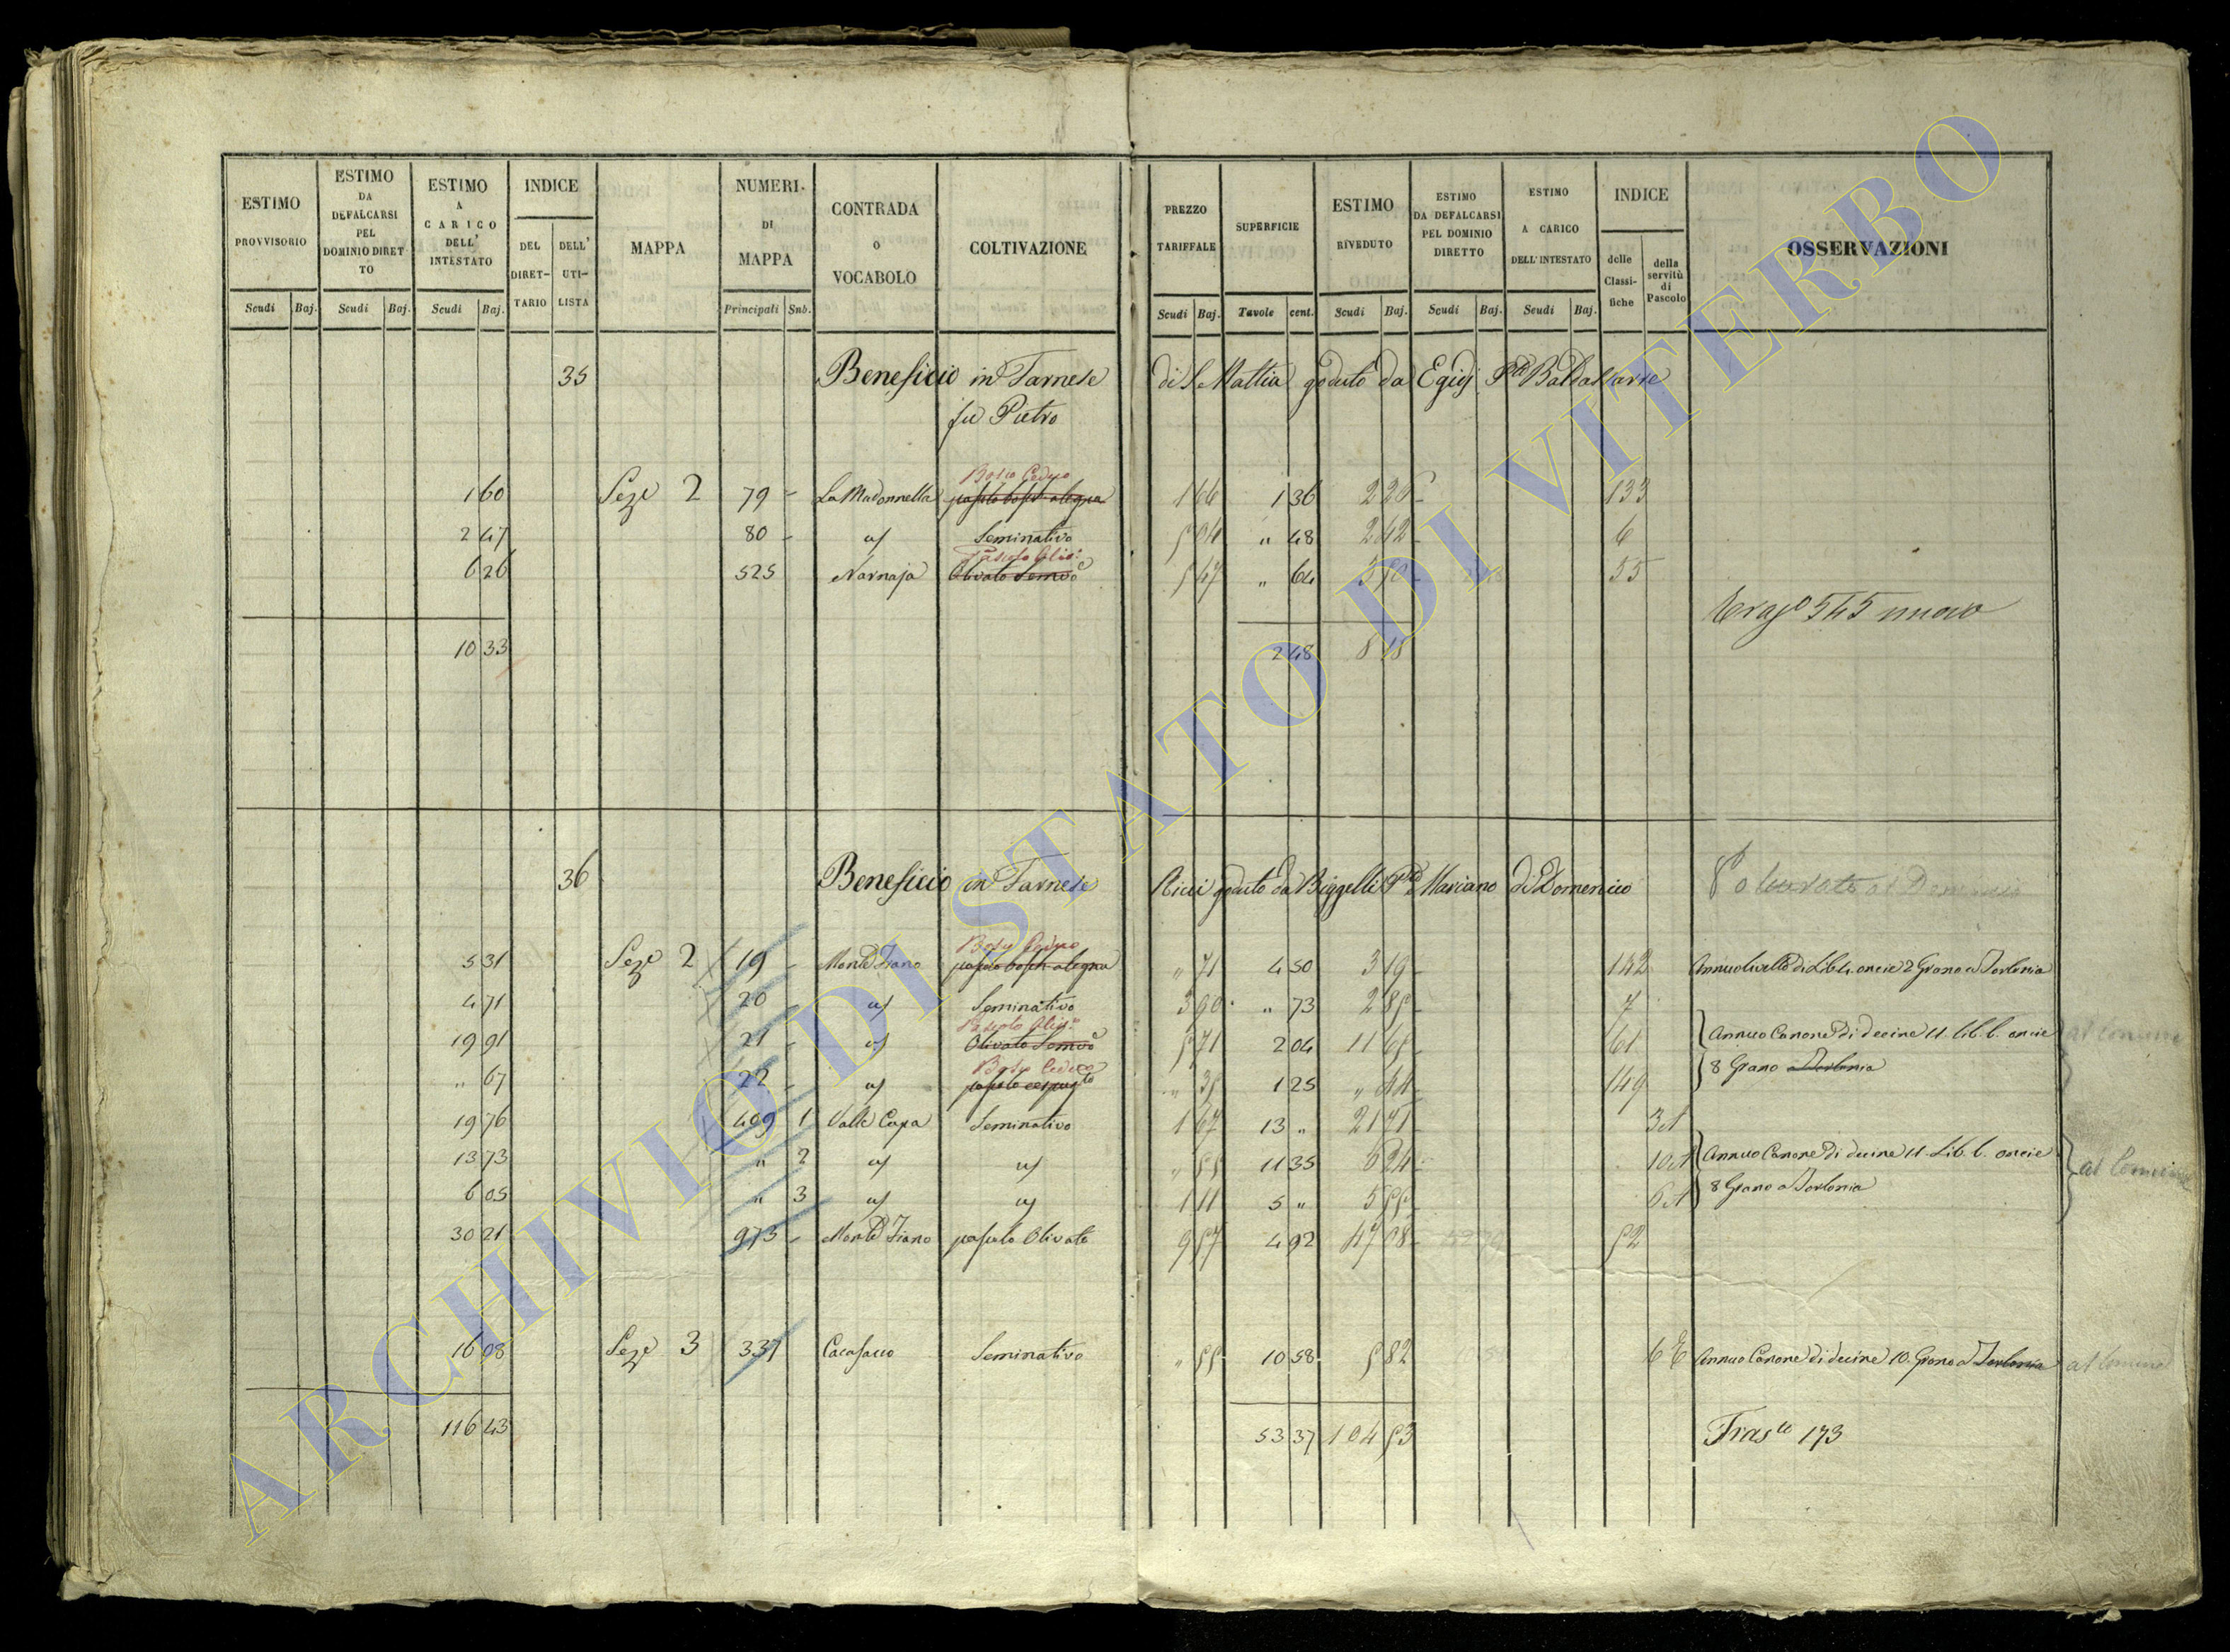 ESTIMO PROVVISORIO Scudi Baj.
ESTIMO DA DEFALCARSI PEL DOMINIO DIRET TO Scudi Baj.
ESTIMO A CARICO DELL' INTESTATO Scudi Baj.
INDICE DEL DIRET-TARIO DELL' UTI-LISTA
MAPPA
NUMERI- DI MAPPA Principali Sub.
CONTRADA O VOCABOLO
COLTIVAZIONE
PREZZO TARIFFALE Scudi Baj.
SUPERFICIE Tavole cent.
ESTIMO RIVEDUTO Scudi Baj.
ESTIMO DA DEFALCARSI PEL DOMINIO DIRETTO Scudi Baj.
ESTIMO A CARICO DELL'INTESTATO Scudi Baj.
INDICE delle Classi-fiche della servitù di Pascolo
OSSERVAZIONI
35 Beneficio in Farnese di S Mattia goduto da Egidj Baldassarre
fu Pietro
Bosco Ceduo
1 60 Seze 2 79 - La Madonnella 1 66 1 36 2 26 133
2 47 80 - Seminativo 5 04 " 48 2 42 6
Pascolo Oliv.
6 26 525 Narnaja Olivato Semvo 5 47 " 64 3 50 55
545 nuovo
10 33 2 48 8 18
36 Beneficio in Farnese Ricci goduto da Biggelli Marciano di Domenico
Bosco Ceduo
5 31 Seze 2 19 - Monte Fiano " 71 4 50 3 19 142 Annuo livello di Lib. 4. oncie 2 Grano a Torlonia
4 71 20 - Seminativo 3 90 " 73 2 85 7
Pascolo Oliv.
19 91 21 - Olivato Semvo 5 71 2 04 11 65 61 Annuo Canone di decine 11. lib. 6. oncie al comune
Bosco Ceduo
" 67 22 - " 35 1 25 " 44 149 8 Grano a Torlonia
19 76 409 1 Valle Cupa Seminativo 1 67 13 " 21 71 3A
13 73 " 2 " 55 11 35 6 24 10A Annuo Canone di decine 11. Lib. 6. oncie
6 05 " 3 1 11 5 " 5 55 6A 8 Grano a Torlonia al Comune
30 21 973 - Monte Fiano pascolo Olivato 9 57 4 92 47 08 52
16 08 Seze 3 337 Cacasacco Seminativo " 55 10 58 5 82 6E Annuo Canone di decine 10. Grano a Torlonia al Comune
116 43 53 37 104 53 Trasto 173
ARCHIVIO DI STATO DI VITERBO